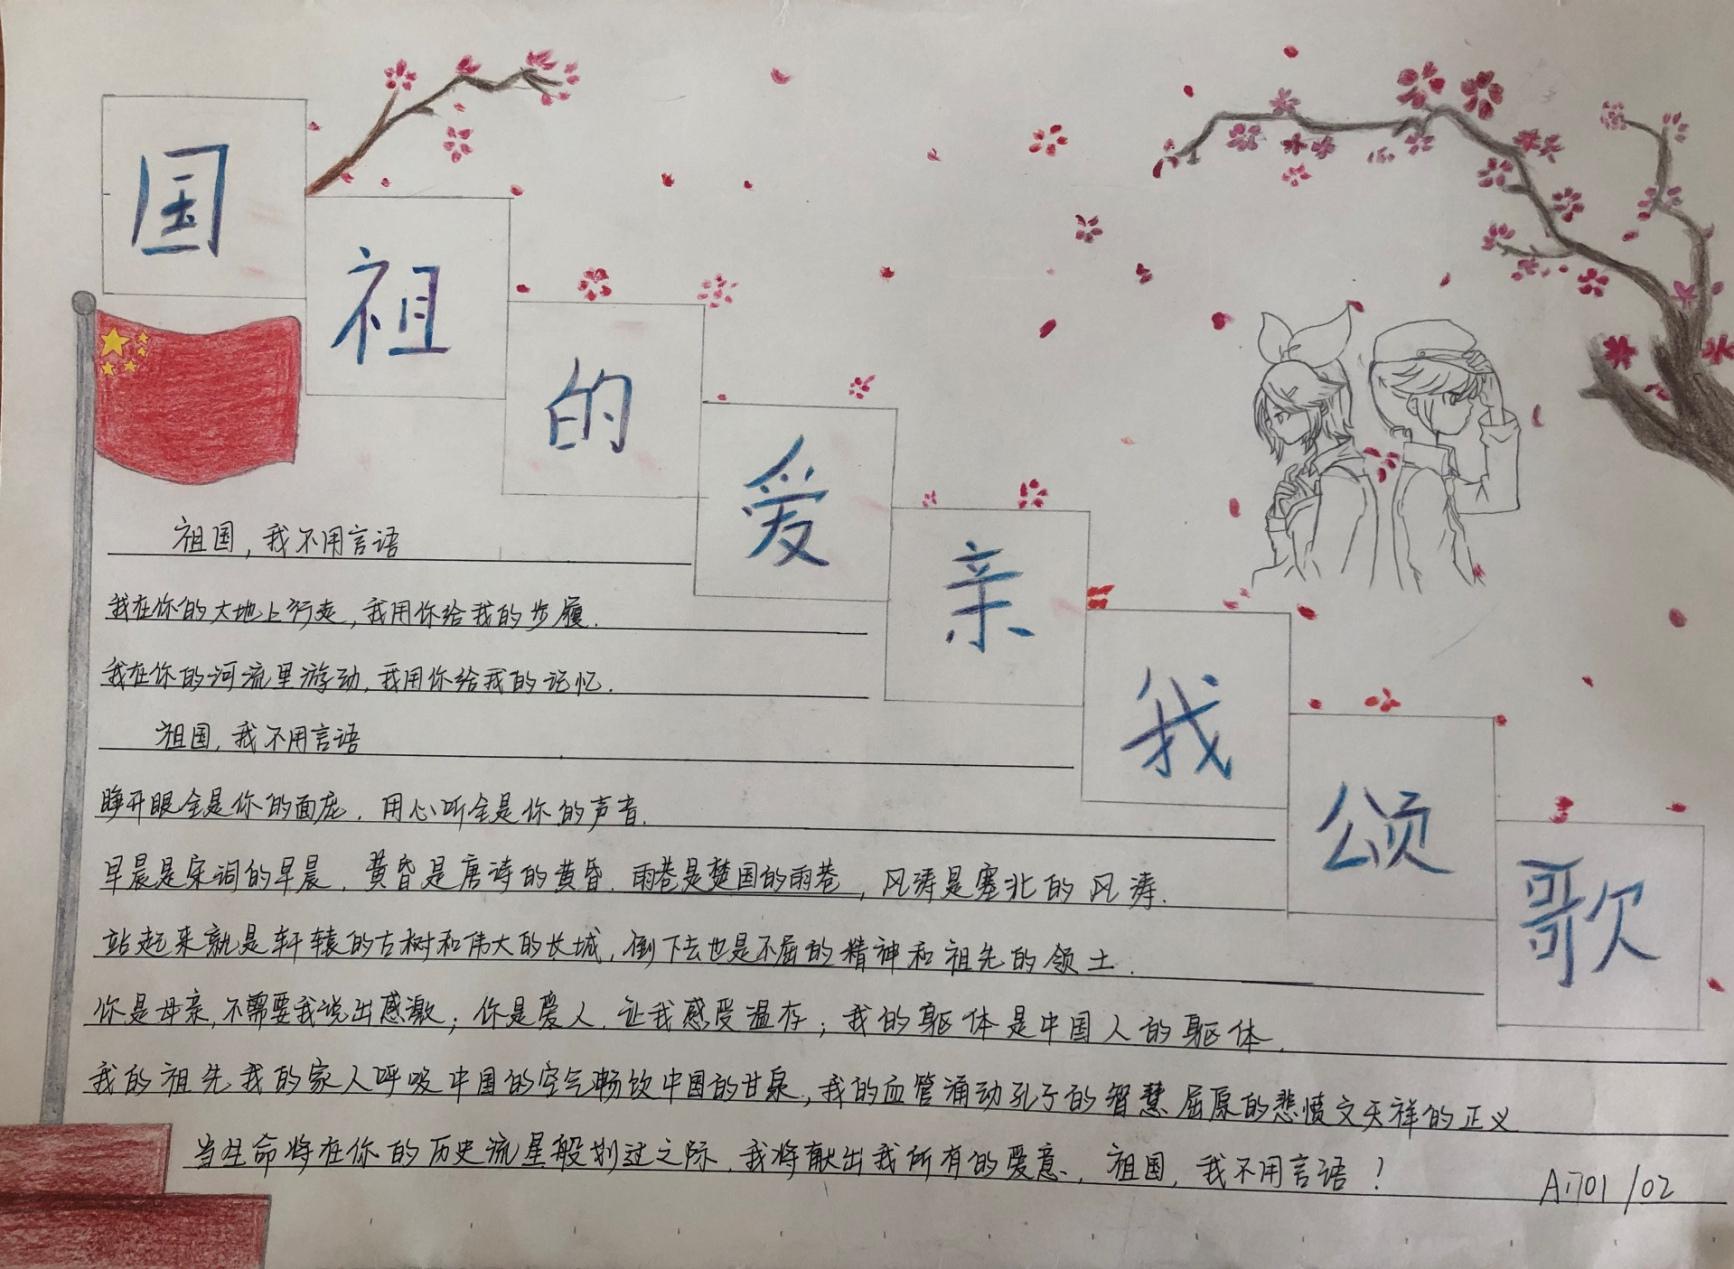 国祖的爱亲我颂歌
祖国，我不用言语
我在你的大地上行走，我用你给我的步履.
我在你的河流里游动，我用你给我的记忆.
祖国，我不用言语
睁开眼全是你的面庞，用心听全是你的声音.
早晨是宋词的早晨，黄昏是唐诗的黄昏，雨巷是楚国的雨巷，风涛是塞北的风涛.
站起来就是轩辕的古树和伟大的长城，倒下去也是不屈的精神和祖先的领土.
你是母亲，不需要我说出感激；你是爱人，让我感受温存；我的躯体是中国人的躯体.
我的祖先我的家人呼吸中国的空气畅饮中国的甘泉，我的血管涌动孔子的智慧屈原的悲愤文天祥的正义
当生命将在你的历史流星般划过之际，我将献出我所有的爱意.，祖国，我不用言语！
A1701/02